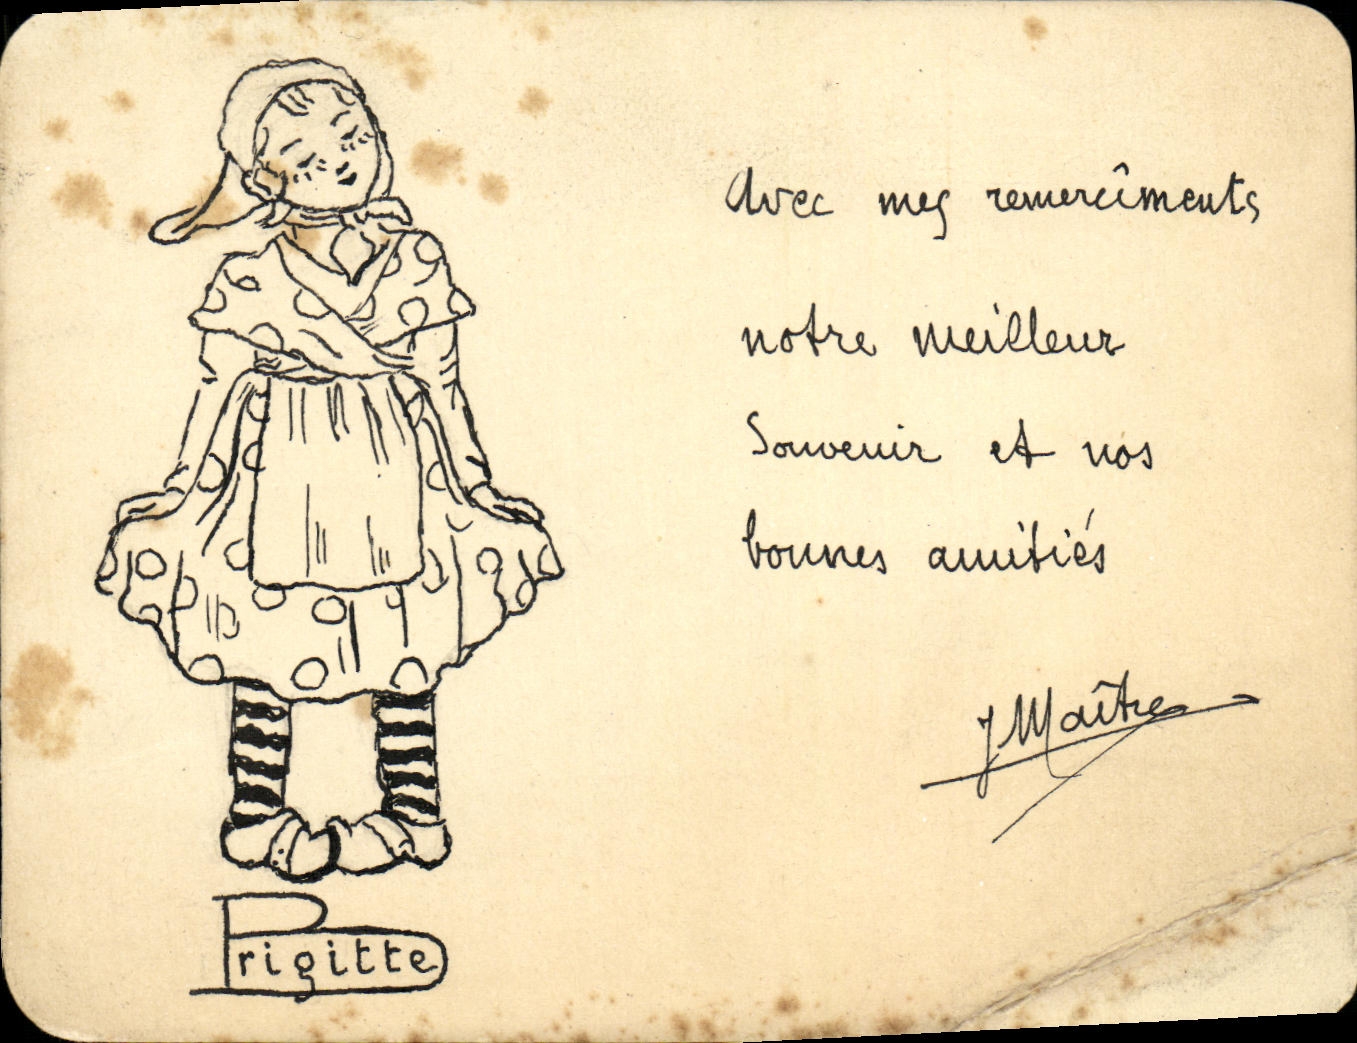 Avec mes remercîments
notre meilleur
Souvenir et nos
bonnes amitiés
J Maître
Brigitte